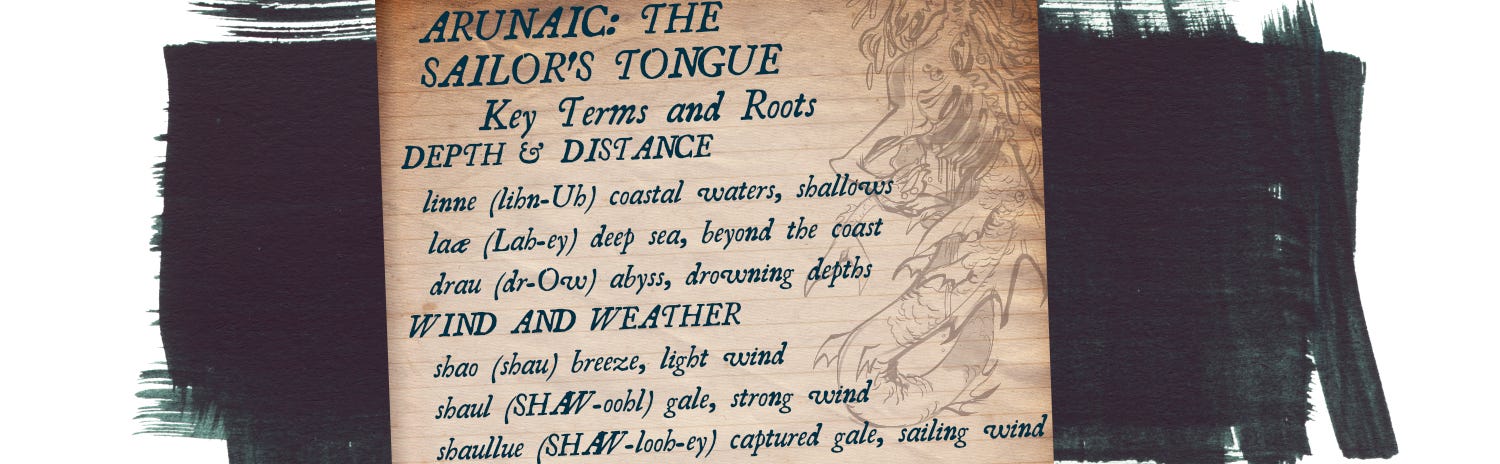 ARUNAIC: THE
SAILOR'S TONGUE
Key Terms and Roots
DEPTH & DISTANCE
linne (lihn-Uh) coastal waters, shallows
laæ (Lah-ey) deep sea, beyond the coast
drau (dr-Ow) abyss, drowning depths
WIND AND WEATHER
shao (shau) breeze, light wind
shaul (SHAW-oohl) gale, strong wind
shaullue (SHAW-looh-ey) captured gale, sailing wind